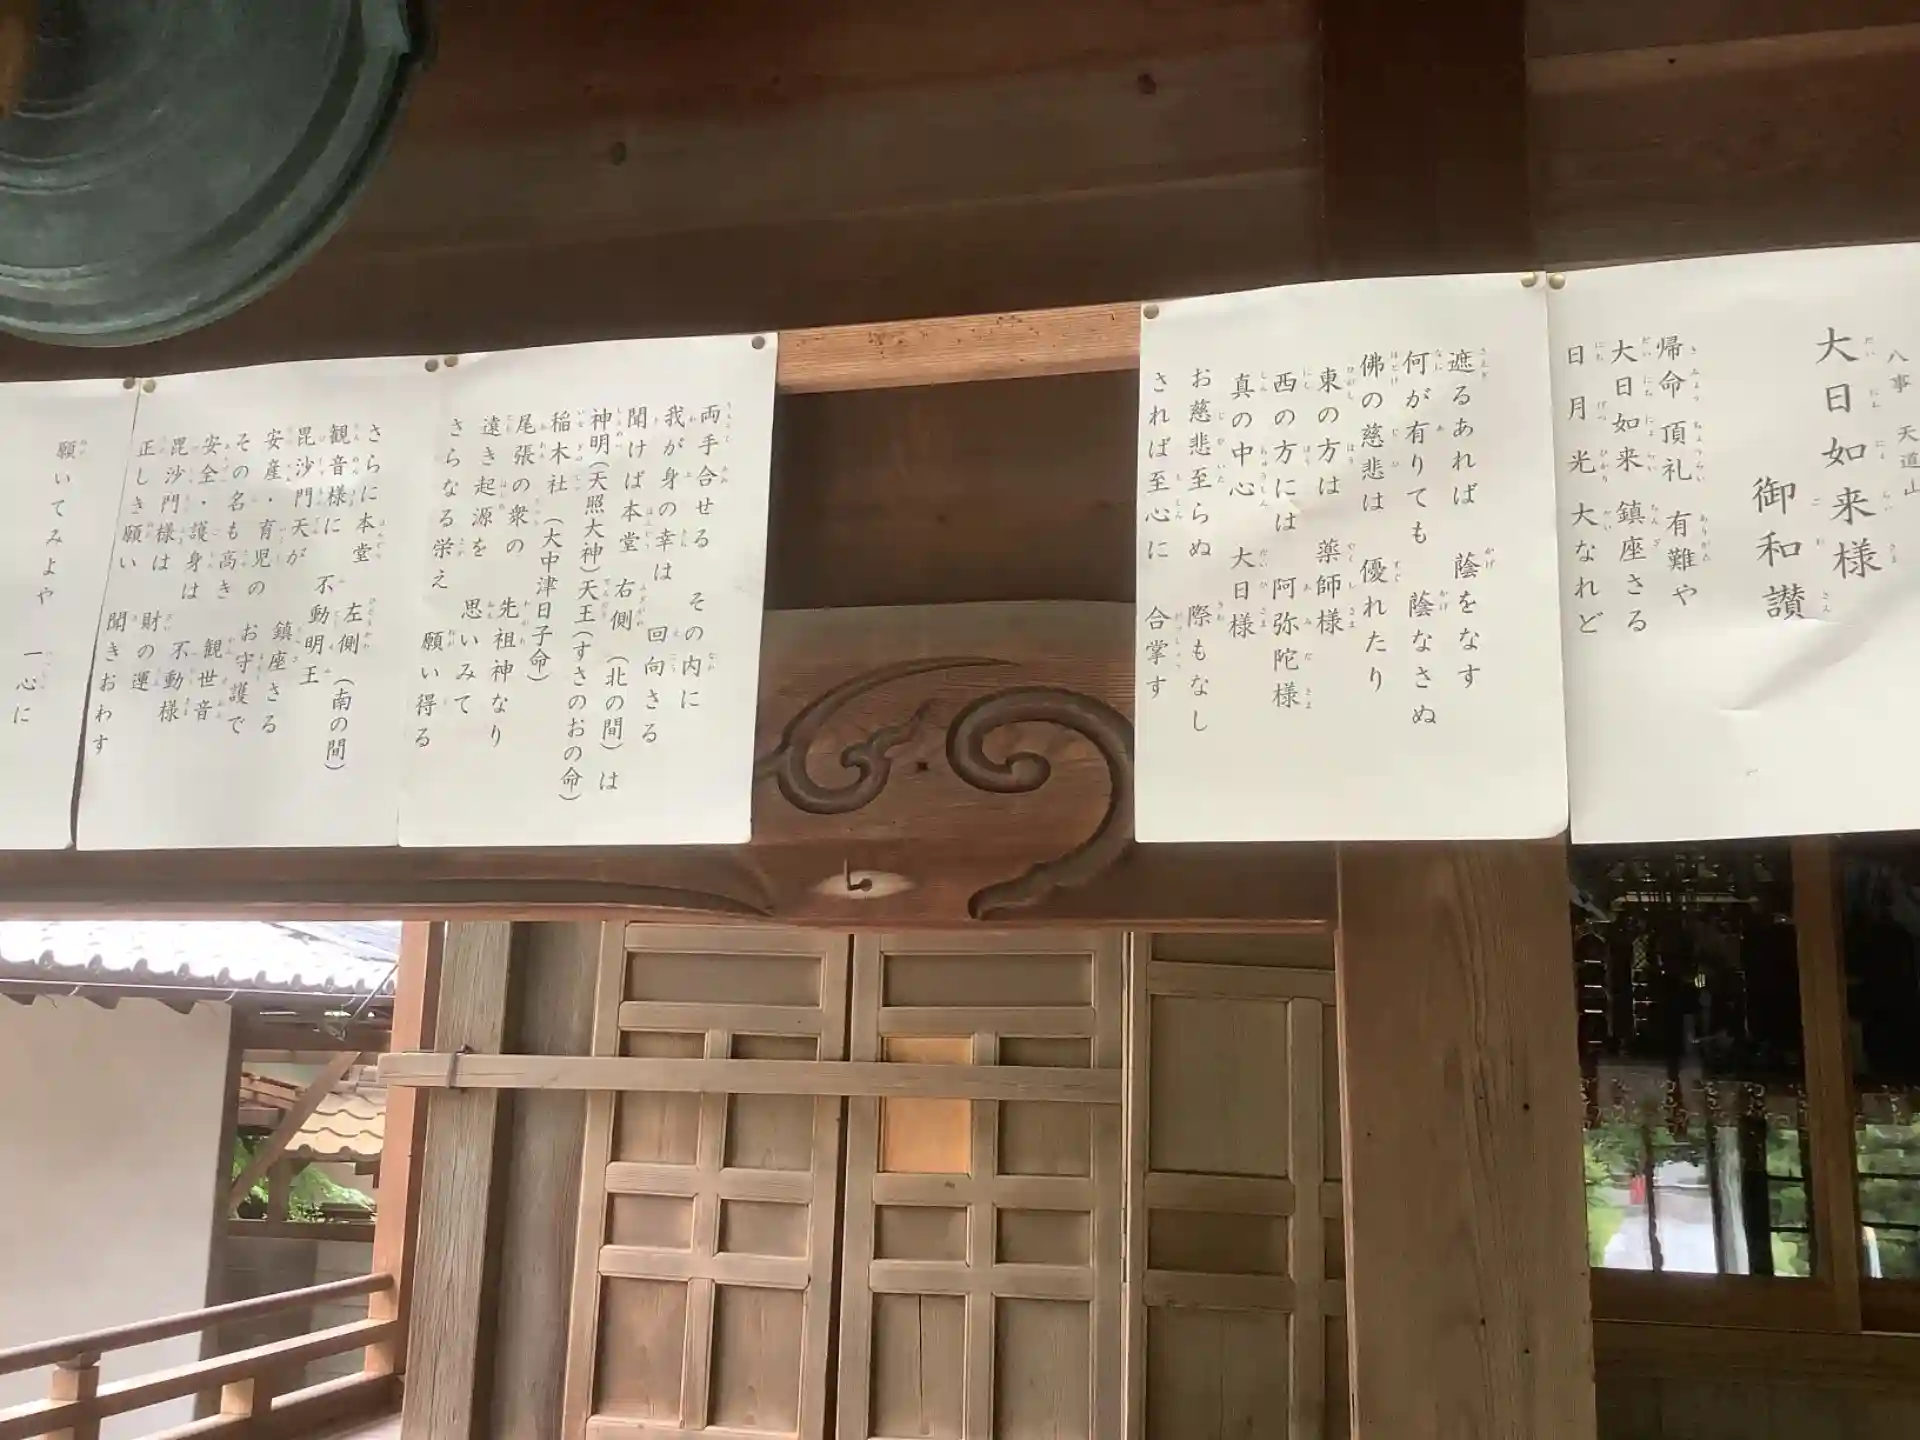 八事 天道山
大日如来様
御和讃
帰命頂礼 有難や
大日如来 鎮座さる
日月光 大なれど
遮るあれば 蔭をなす
何が有りても 蔭なさぬ
佛の慈悲は 優れたり
東の方は 薬師様
西の方には 阿弥陀様
真の中心 大日様
お慈悲至らぬ 際もなし
されば至心に 合掌す
両手合せる その内に
我が身の幸は 回向さる
聞けば本堂 右側 (北の間) は
神明(天照大神)天王(すさのおの命)
稲木社 (大中津日子命)
尾張の衆の 先祖神なり
遠き起源を 思いみて
さらなる栄え 願い得る
さらに本堂 左側 (南の間)
観音様に 不動明王
毘沙門天が 鎮座さる
安産・育児の お守護で
その名も高き 観世音
安全・護身は 不動様
毘沙門様は 財の運
正しき願い 聞きおわす
願いてみよや 一心に